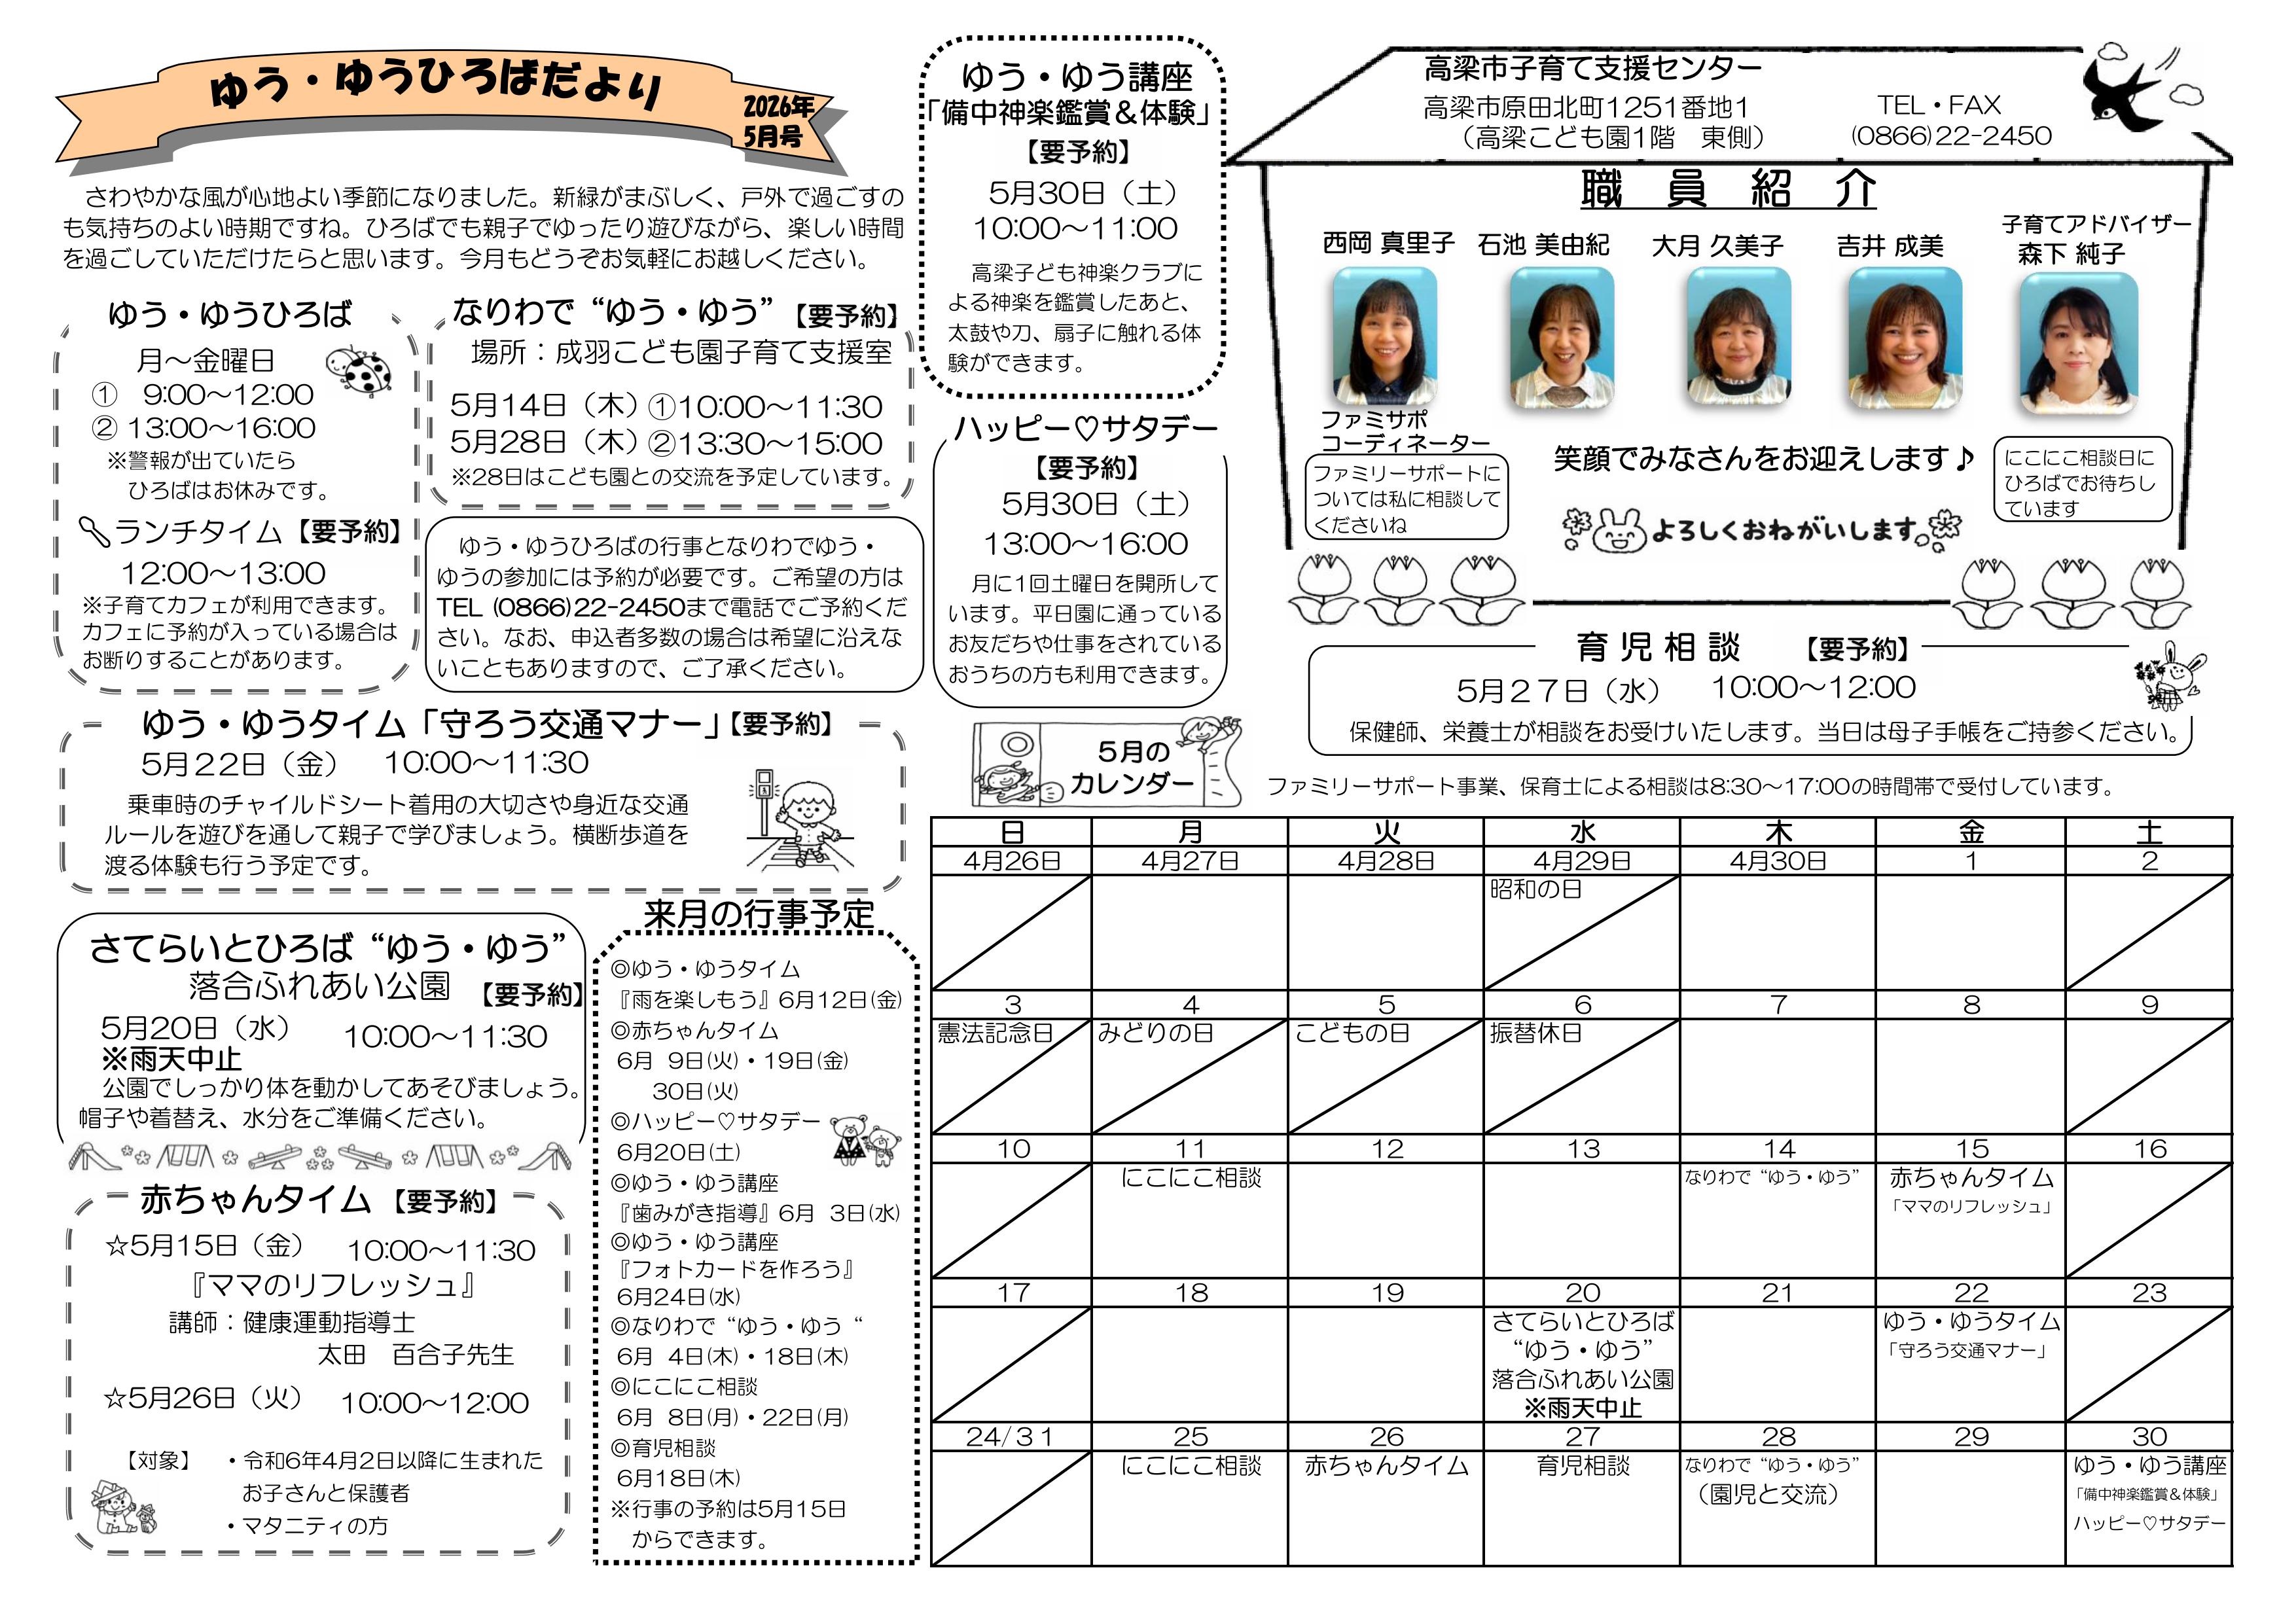 ゆう・ゆうひろばだより
2026年
5月号
さわやかな風が心地よい季節になりました。新緑がまぶしく、戸外で過ごすの
も気持ちのよい時期ですね。ひろばでも親子でゆったり遊びながら、楽しい時間
を過ごしていただけたらと思います。今月もどうぞお気軽にお越しください。
ゆう・ゆうひろば
月～金曜日
① 9:00～12:00
② 13:00～16:00
※警報が出ていたら
ひろばはお休みです。
ランチタイム【要予約】
12:00～13:00
※子育てカフェが利用できます。
カフェに予約が入っている場合は
お断りすることがあります。
なりわで“ゆう・ゆう”【要予約】
場所：成羽こども園子育て支援室
5月14日（木）①10:00～11:30
5月28日（木）②13:30～15:00
※28日はこども園との交流を予定しています。
ゆう・ゆうひろばの行事となりわでゆう・
ゆうの参加には予約が必要です。ご希望の方は
TEL (0866)22-2450まで電話でご予約くだ
さい。なお、申込者多数の場合は希望に沿えな
いこともありますので、ご了承ください。
ゆう・ゆうタイム「守ろう交通マナー」【要予約】
5月22日（金） 10:00～11:30
乗車時のチャイルドシート着用の大切さや身近な交通
ルールを遊びを通して親子で学びましょう。横断歩道を
渡る体験も行う予定です。
さてらいとひろば“ゆう・ゆう”
落合ふれあい公園 【要予約】
5月20日（水） 10:00～11:30
※雨天中止
公園でしっかり体を動かしてあそびましょう。
帽子や着替え、水分をご準備ください。
赤ちゃんタイム【要予約】
☆5月15日（金） 10:00～11:30
『ママのリフレッシュ』
講師：健康運動指導士
太田 百合子先生
☆5月26日（火） 10:00～12:00
【対象】 ・令和6年4月2日以降に生まれた
お子さんと保護者
・マタニティの方
来月の行事予定
◎ゆう・ゆうタイム
『雨を楽しもう』6月12日(金)
◎赤ちゃんタイム
6月 9日(火)・19日(金)
30日(火)
◎ハッピー♡サタデー
6月20日(土)
◎ゆう・ゆう講座
『歯みがき指導』6月 3日(水)
◎ゆう・ゆう講座
『フォトカードを作ろう』
6月24日(水)
◎なりわで“ゆう・ゆう“
6月 4日(木)・18日(木)
◎にこにこ相談
6月 8日(月)・22日(月)
◎育児相談
6月18日(木)
※行事の予約は5月15日
からできます。
ゆう・ゆう講座
「備中神楽鑑賞＆体験」
【要予約】
5月30日（土）
10:00～11:00
高梁子ども神楽クラブに
よる神楽を鑑賞したあと、
太鼓や刀、扇子に触れる体
験ができます。
ハッピー♡サタデー
【要予約】
5月30日（土）
13:00～16:00
月に1回土曜日を開所して
います。平日園に通っている
お友だちや仕事をされている
おうちの方も利用できます。
高梁市子育て支援センター
高梁市原田北町1251番地1
（高梁こども園1階 東側）
TEL・FAX
(0866)22-2450
職員紹介
西岡 真里子 石池 美由紀 大月 久美子 吉井 成美
子育てアドバイザー
森下 純子
ファミサポ
コーディネーター
ファミリーサポートに
ついては私に相談して
くださいね
笑顔でみなさんをお迎えします♪
よろしくおねがいします。
にこにこ相談日に
ひろばでお待ちし
ています
育児相談 【要予約】
5月27日（水） 10:00～12:00
保健師、栄養士が相談をお受けいたします。当日は母子手帳をご持参ください。
5月の
カレンダー
ファミリーサポート事業、保育士による相談は8:30～17:00の時間帯で受付しています。
日 月 火 水 木 金 土
4月26日 4月27日 4月28日 4月29日 4月30日 1 2
昭和の日
3 4 5 6 7 8 9
憲法記念日 みどりの日 こどもの日 振替休日
10 11 12 13 14 15 16
にこにこ相談 なりわで“ゆう・ゆう” 赤ちゃんタイム
「ママのリフレッシュ」
17 18 19 20 21 22 23
さてらいとひろば ゆう・ゆうタイム
“ゆう・ゆう” 「守ろう交通マナー」
落合ふれあい公園
※雨天中止
24/31 25 26 27 28 29 30
にこにこ相談 赤ちゃんタイム 育児相談 なりわで“ゆう・ゆう” ゆう・ゆう講座
（園児と交流） 「備中神楽鑑賞＆体験」
ハッピー♡サタデー